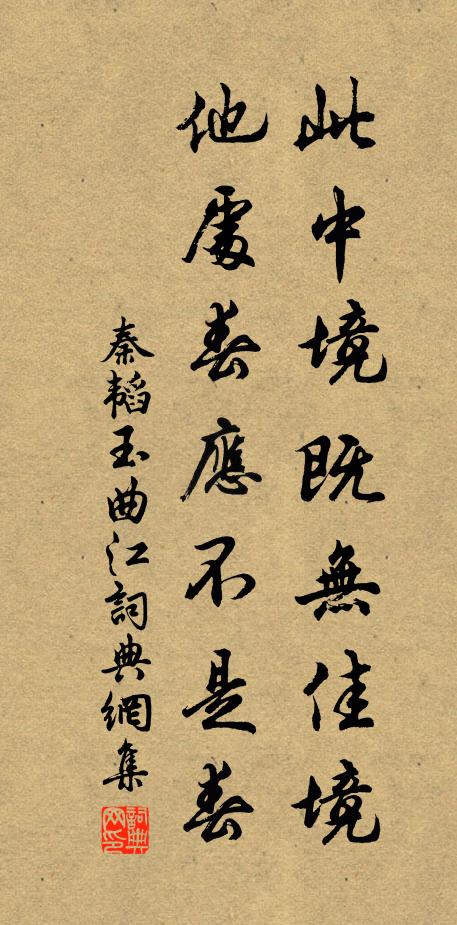 此中境既無佳境
他處春應不是春
秦韜玉曲江詞典網集
詞典網印